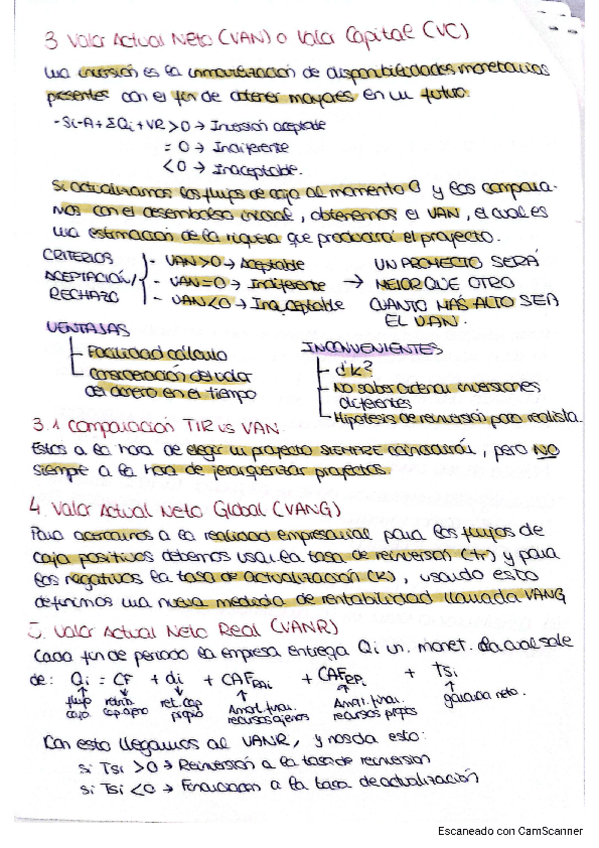 3 Valor Actual Neto (VAN) o Valor Capital (VC)
Una inversión es la inmovilización de disponibilidades monetarias
presentes con el fin de obtener mayores en un futuro.
-Si-A+ΣQi+VR>0→ Inversión aceptable
=0→ Indiferente
<0→ Inaceptable.
Si actualizamos los flujos de caja al momento 0 y los compara-
mos con el desembolso inicial, obtenemos el VAN, el cual es
una estimación de la riqueza que producirá el proyecto.
CRITERIOS ACEPTACIÓN/ RECHAZO
- VAN>0→ Aceptable
- VAN=0→ Indiferente
- VAN<0→ Inaceptable
→ UN PROYECTO SERÁ
MEJOR QUE OTRO
CUANTO MÁS ALTO SEA
EL VAN.
VENTAJAS
Facilidad cálculo
Consideración del valor
del dinero en el tiempo
INCONVENIENTES
d k?
No saber ordenar inversiones
diferentes
Hipótesis de reinversión poco realista.
3.1 Comparación TIR vs VAN
Estos a la hora de elegir un proyecto SIEMPRE coincidirán, pero NO
siempre a la hora de jerarquizar proyectos.
4. Valor Actual Neto Global (VANG)
Para acercarnos a la realidad empresarial para los flujos de
caja positivos debemos usar la tasa de reinversión (tr) y para
los negativos la tasa de actualización (K), usando esto
definimos una nueva medida de rentabilidad llamada VANG
5. Valor Actual Neto Real (VANR)
Cada fin de periodo la empresa entrega Qi un. monet. la cual sale
de: Qi = CF + di + CAF + CAF + TSi
flujo caja
cap. ajeno
ret. cap propio
Amort. finan. recursos ajenos
Amort. finan. recursos propios
ganancia neta.
Con esto llegamos al VANR, y nos da esto:
si Tsi >0→ Reinversión a la tasa de reinversión
si Tsi <0→ Financiación a la tasa de actualización
Escaneado con CamScanner